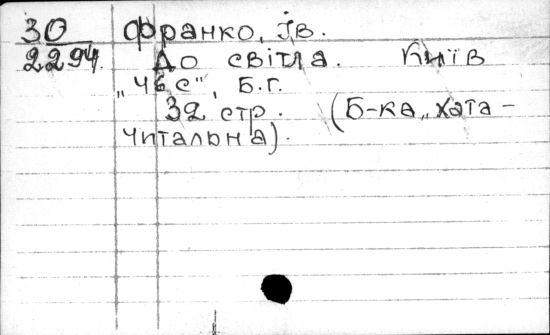 30 Франко, Ів.
2294 До світла. Київ
„Час", Б.Г.
32 стр. (Б-ка „Хата-
Читальна).